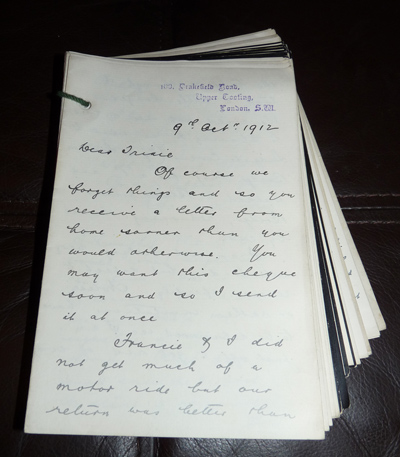 103, Drakefield Road,
Upper Tooting,
London. S.W.
9th Octr 1912
Dear Trixie
Of course we
forget things and so you
receive a letter from
home sooner than you
would otherwise. You
may want this cheque
soon and so I send
it at once
Francie & I did
not get much of a
motor ride but our
return was better than